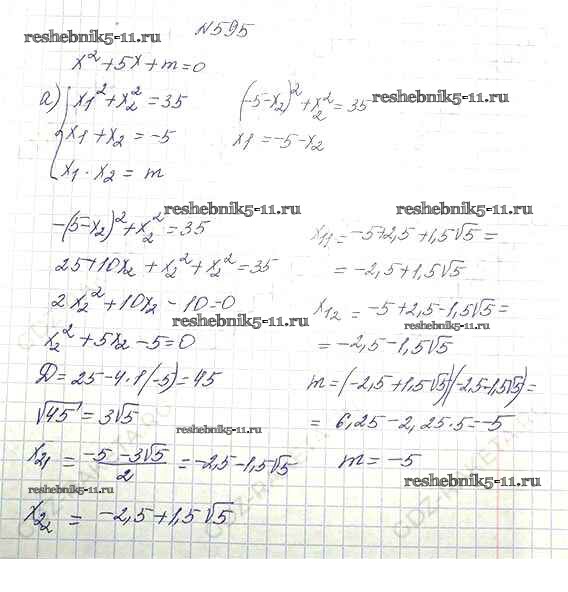 N595
reshebnik5-11.ru
x² + 5x + m = 0
а) { x1² + x2² = 35
x1 + x2 = -5
x1 · x2 = m
(-5-x2)² + x2² = 35
reshebnik5-11.ru
x1 = -5-x2
reshebnik5-11.ru
-(5-x2)² + x2² = 35
25+10x2 + x2² + x2² = 35
2x2² + 10x2 - 10 = 0
reshebnik5-11.ru
x2² + 5x2 - 5 = 0
D = 25-4·1(-5) = 45
√45 = 3√5
reshebnik5-11.ru
x21 = -5-3√5/2 = -2,5-1,5√5
reshebnik5-11.ru
x22 = -2,5+1,5√5
reshebnik5-11.ru
x11 = -5+2,5+1,5√5 =
= -2,5+1,5√5
x12 = -5+2,5-1,5√5 =
reshebnik5-11.ru
= -2,5-1,5√5
m = (-2,5+1,5√5)(-2,5-1,5√5) =
= 6,25-2,25·5 = -5
m = -5
reshebnik5-11.ru